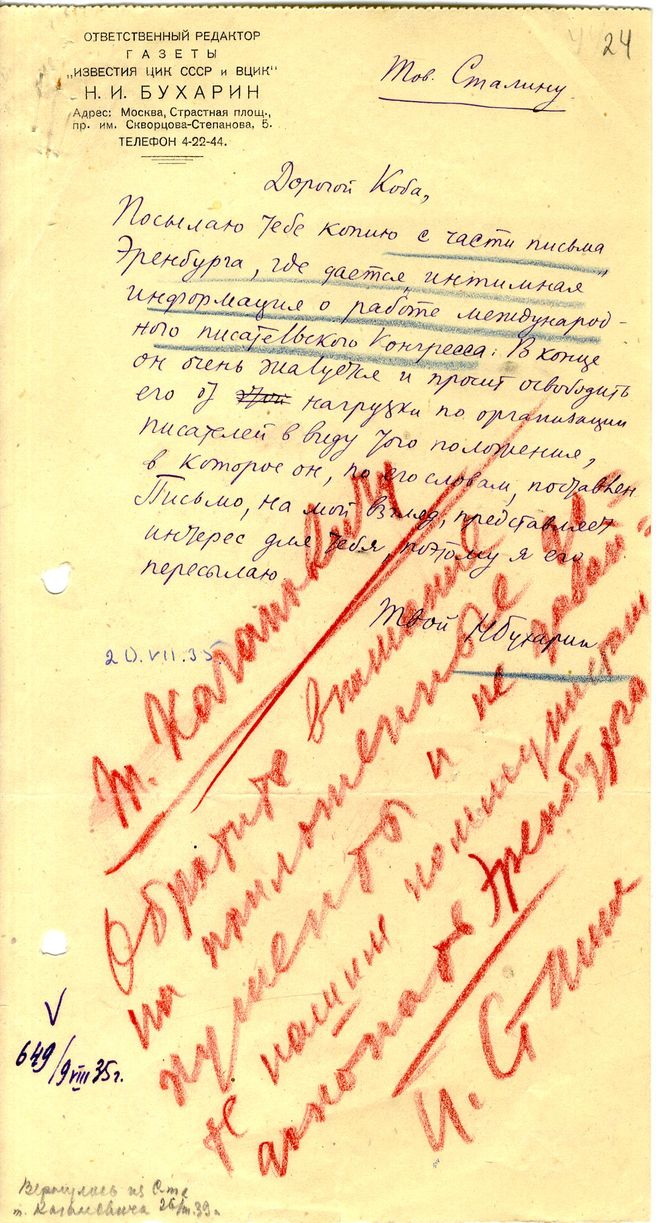 ОТВЕТСТВЕННЫЙ РЕДАКТОР
ГАЗЕТЫ
„ИЗВЕСТИЯ ЦИК СССР и ВЦИК"
Н. И. БУХАРИН
Адрес: Москва, Страстная площ.,
пр. им. Скворцова-Степанова, 5.
ТЕЛЕФОН 4-22-44.
24
Тов. Сталину.
Дорогой Коба,
Посылаю тебе копию с части письма
Эренбурга, где дается „интимная"
информация о работе международ-
ного писательского Конгресса. В конце
он очень жалуется и просит освободить
его от этой нагрузки по организации
писателей в виду того положения,
в которое он, по его словам, поставлен
Письмо, на мой взгляд, представляет
интерес для тебя, поэтому я его
пересылаю
Твой НБухарин
20.VII.35
Т. Кагановичу
Обратите внимание
на приложенный до-
кумент и не давай-
те нашим коммунистам
доконать Эренбурга
И. Сталин
V
649/9 VIII 35 г.
Вернулось из
т. Кагановича